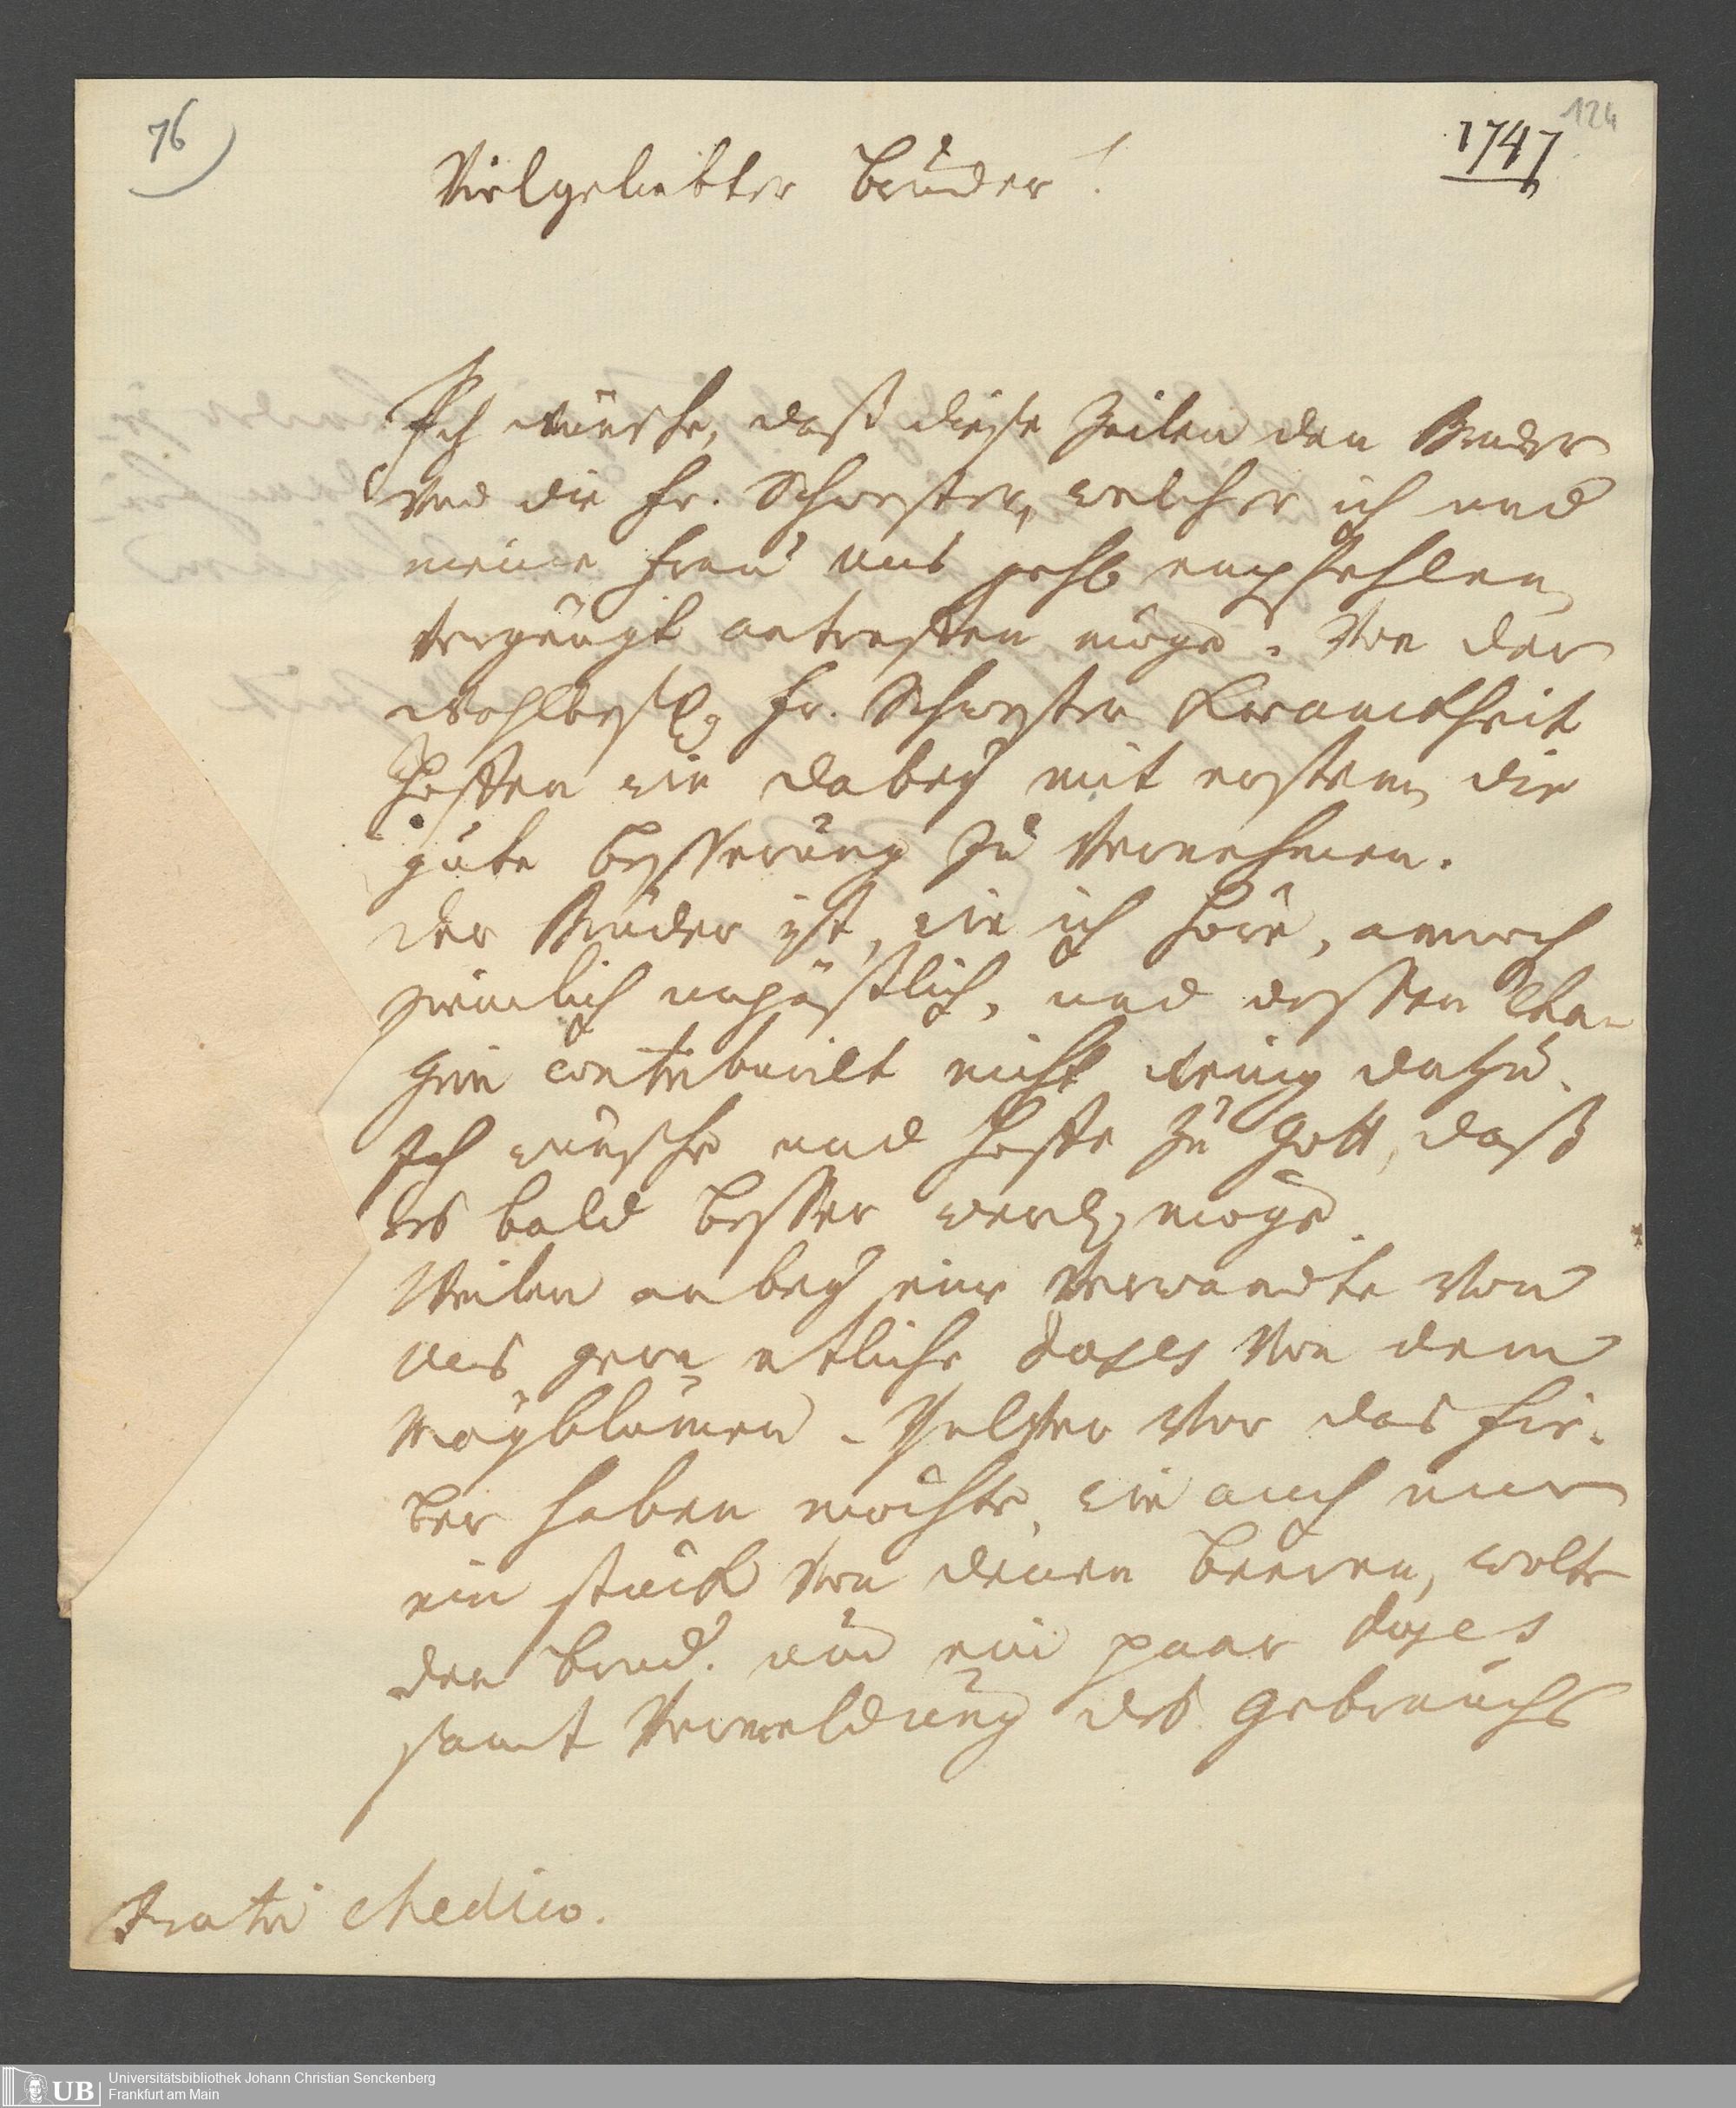 76)
124
1747
Vielgeliebter Bruder!
Ich wünsche, daß diese Zeilen den Bruder
und die Fr. Schwester, welcher ich und
meine Frau uns gehs empfehlen
vergnügt antreffen möge. Von der
Fr. Schwester Kranckheit
hoffen wir dabey mit erstem die
gute Besserung zu vernehmen.
der Bruder ist, wie ich höre, annoch
zimlich unpäßlich, und dessen Cha-
grin contribuirt nicht wenig datzu.
Ich wünsche und hoffe zu Gott, daß
es bald besser werden möge.
Weilen anbey eine Verwandte von
uns gern etliche doses von dem
Mayblumen-Pulver vor das Fie-
ber haben möchte, wie auch nur
ein stück von denen Beeren, wolte
den Brud. um ein paar doses
samt Vermeldung des Gebrauchs
Fratri Medico.
UB
Universitätsbibliothek Johann Christian Senckenberg
Frankfurt am Main